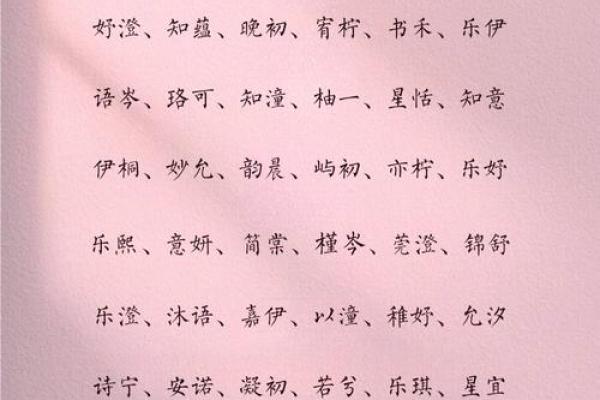 妤澄、知蕴、晚初、宥柠、书禾、乐伊
语岑、珞可、知潼、柚一、星恬、知意
伊桐、妙允、韵晨、屿初、亦柠、乐妤
乐熙、意妍、简棠、槿岑、莞澄、锦舒
乐澄、沐语、嘉伊、以潼、稚妤、允汐
诗宁、安诺、凝初、若兮、乐琪、星宜